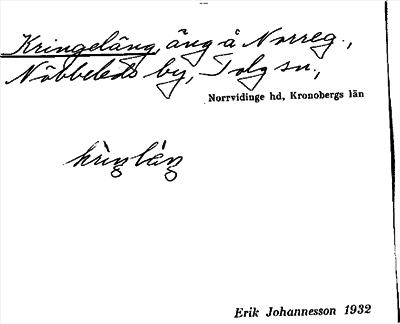 Kringeläng, äng å Norreg.,
Nöbbeleds by, Tolg sn,
Norrvidinge hd, Kronobergs län
krìŋläŋ
Erik Johannesson 1932